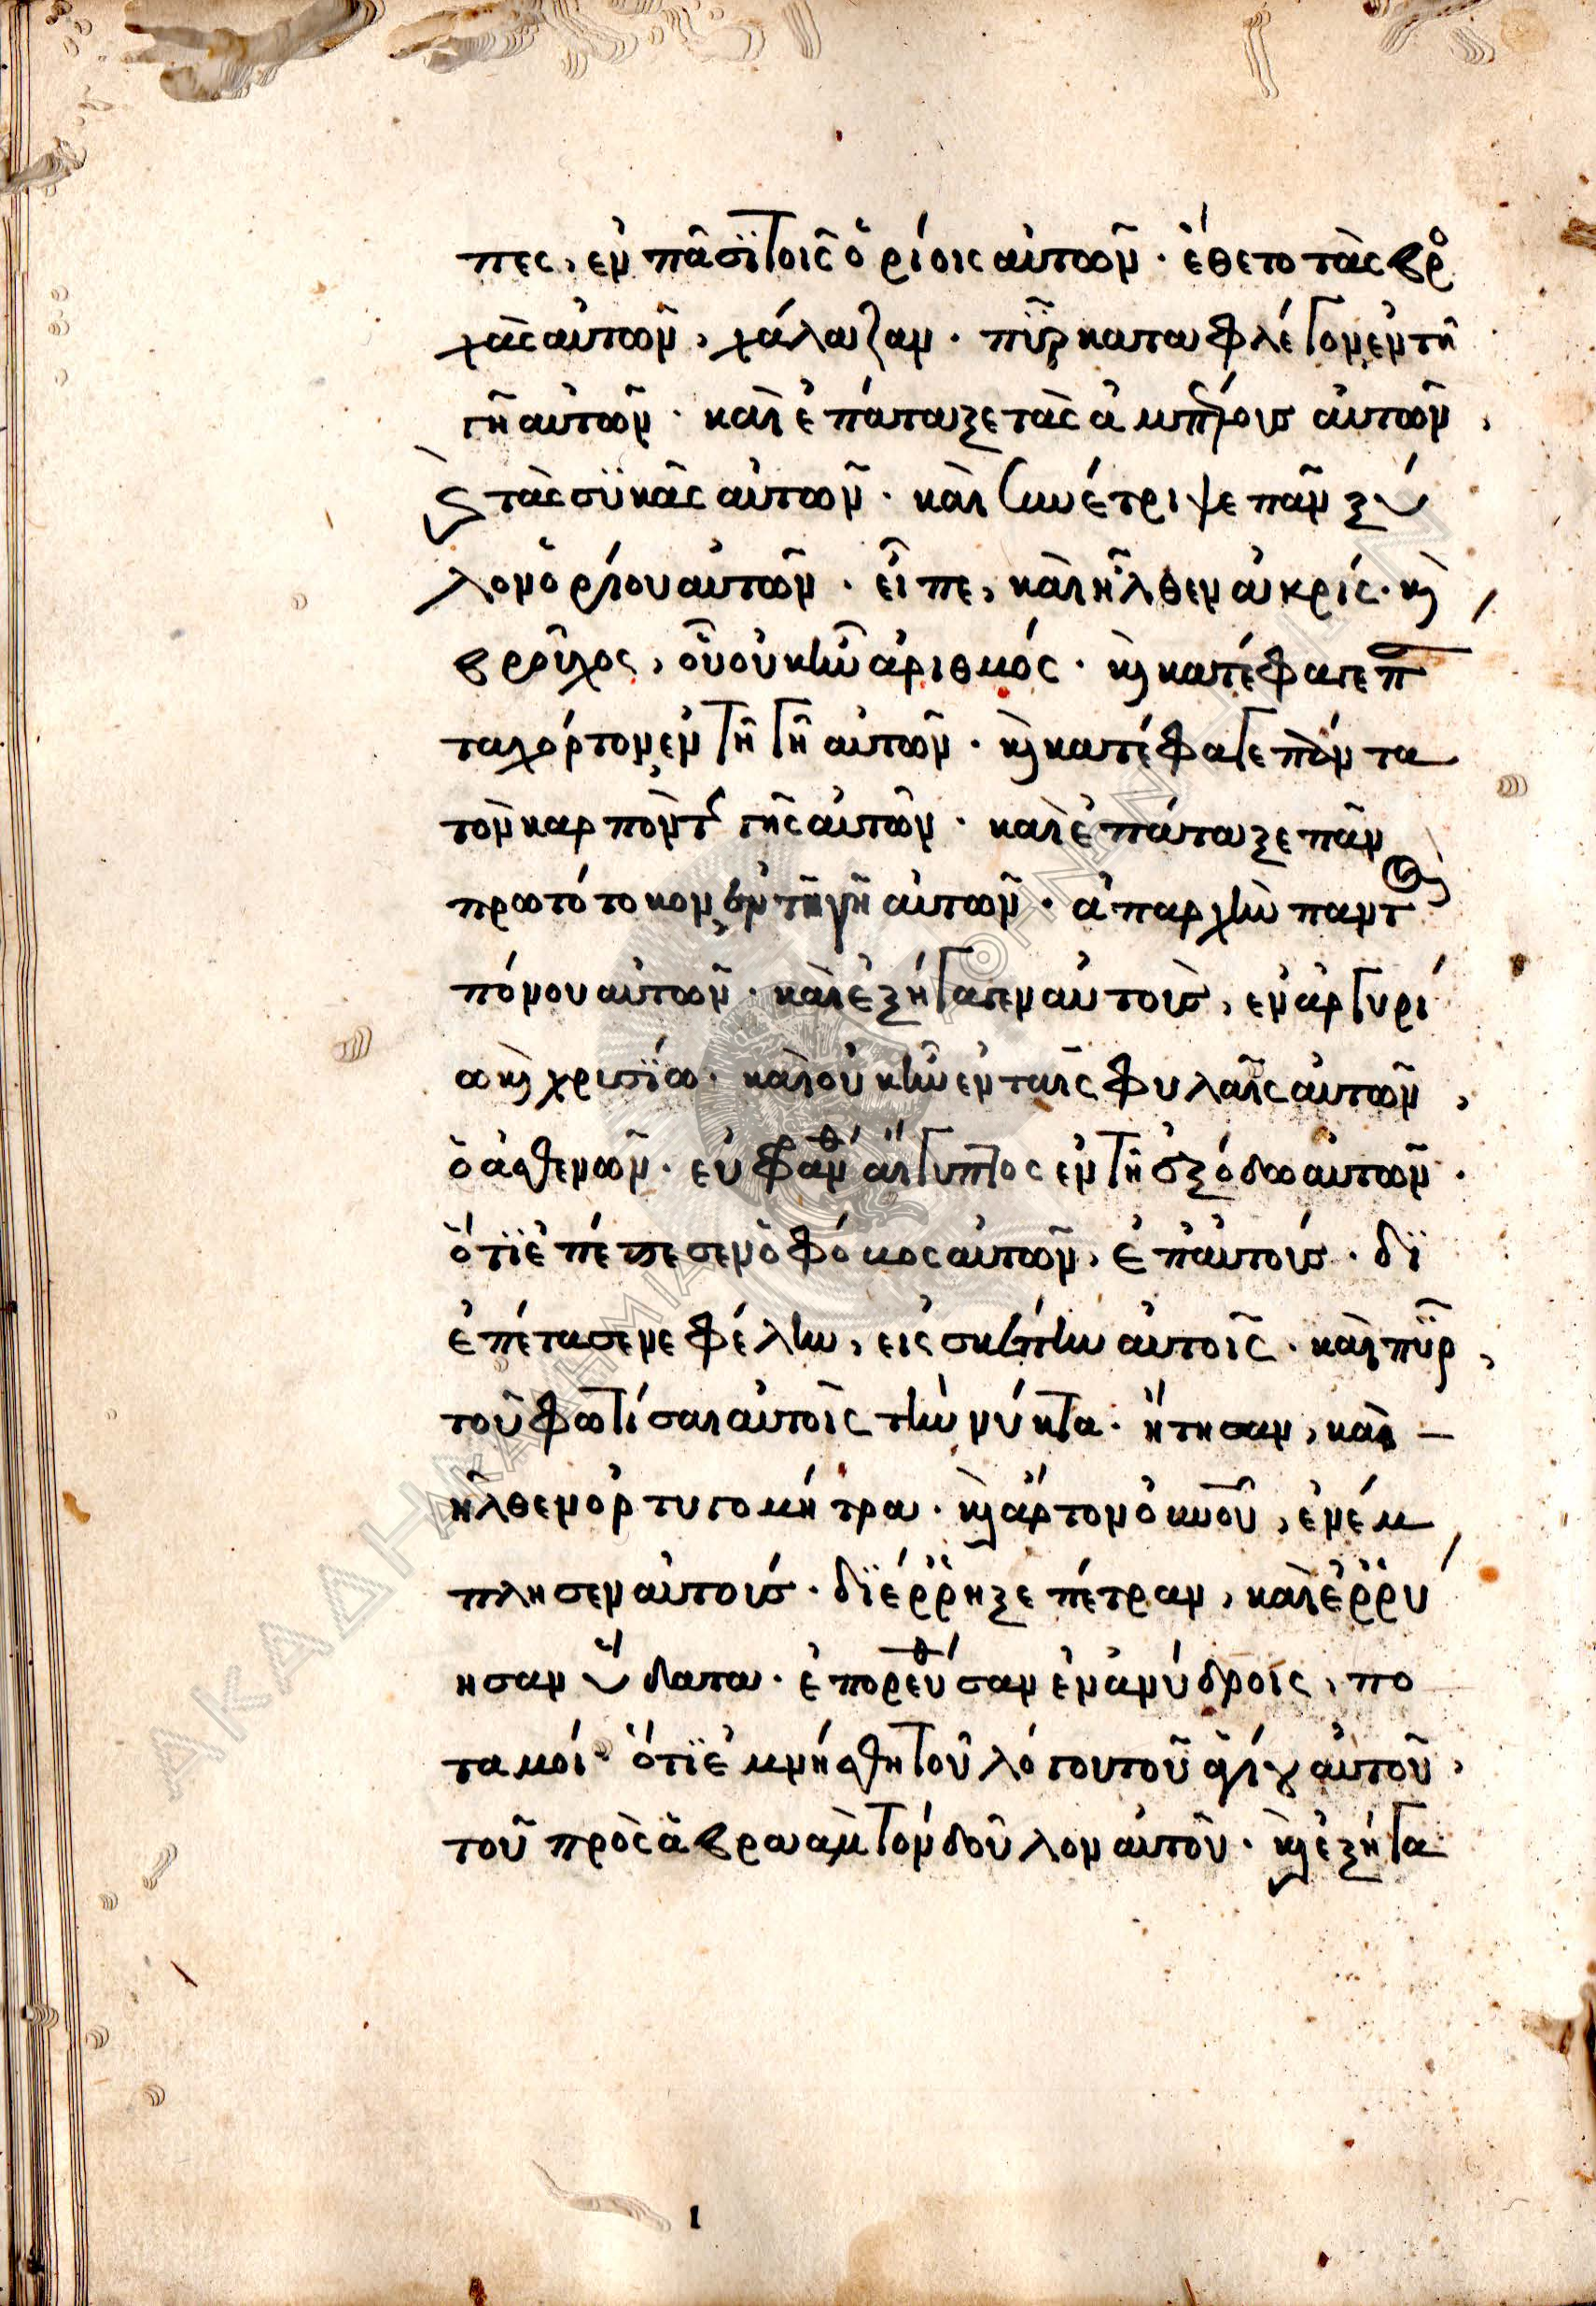 πες, ἐν πᾶσϊ τοῖς ὁρίοις αὐτῶν · ἔθετο τὰς βρο
χὰς αὐτῶν, χάλαζαν · πῦρ καταφλέγον ἐν τῆ
γῆ αὐτῶν · καὶ ἐπάταξε τὰς ἀμπέλους αὐτῶν,
ϗ τὰς σϋκᾶς αὐτῶν · καὶ συνέτριψε πᾶν ξύ
λον ὁρίου αὐτῶν · εἶπε, καὶ ἦλθεν ἀκρίς · ϗ
βροῦχος, οὗ οὐκ ἦν ἀριθμός · ϗ κατέφαγε πάν
τα χόρτον ἐν τῆ γῆ αὐτῶν · ϗ κατέφαγε πάντα
τὸν καρπὸν τῆς γῆς αὐτῶν · καὶ ἐπάταξε πᾶν
πρωτότοκον ἐν τῆ γῆ αὐτῶν · ἀπαρχὴν παντὸς
πόνου αὐτῶν · καὶ ἐξήγαγεν αὐτοὺς, ἐν ἀργυρί
ω ϗ χρυσίω · καὶ οὐκ ἦν ἐν ταῖς φυλαῖς αὐτῶν,
ὁ ἀσθενῶν · εὐφράνθη αἴγυπτος ἐν τῆ ἐξόδω αὐτῶν ·
ὅτϊ ἐπέπεσεν ὁ φόβος αὐτῶν, ἐπ' αὐτούς · δϊ
επέτασε νεφέλην, εἰς σκέπην αὐτοῖς · καὶ πῦρ,
τοῦ φωτίσαι αὐτοῖς τὴν νύκτα · ἤτησαν, καὶ –
ἦλθεν ὀρτυγομήτρα · ϗ ἄρτον οὐνοῦ, ἐνέ
πλησεν αὐτούς · δϊέρρηξε πέτραν, καὶ ἐρρύ
ησαν ὕδατα · ἐπορεύθησαν ἐν ἀνύδροις, πο
ταμοί · ὅτϊ ἐμνήσθη τοῦ λόγου τοῦ ἁγίου αὐτοῦ,
τοῦ πρὸς ἀβραὰμ τὸν δοῦλον αὐτοῦ · ϗ ἐξήγα
1
ΑΚΑΔΗΜΙΑ ΑΘΗΝΩΝ